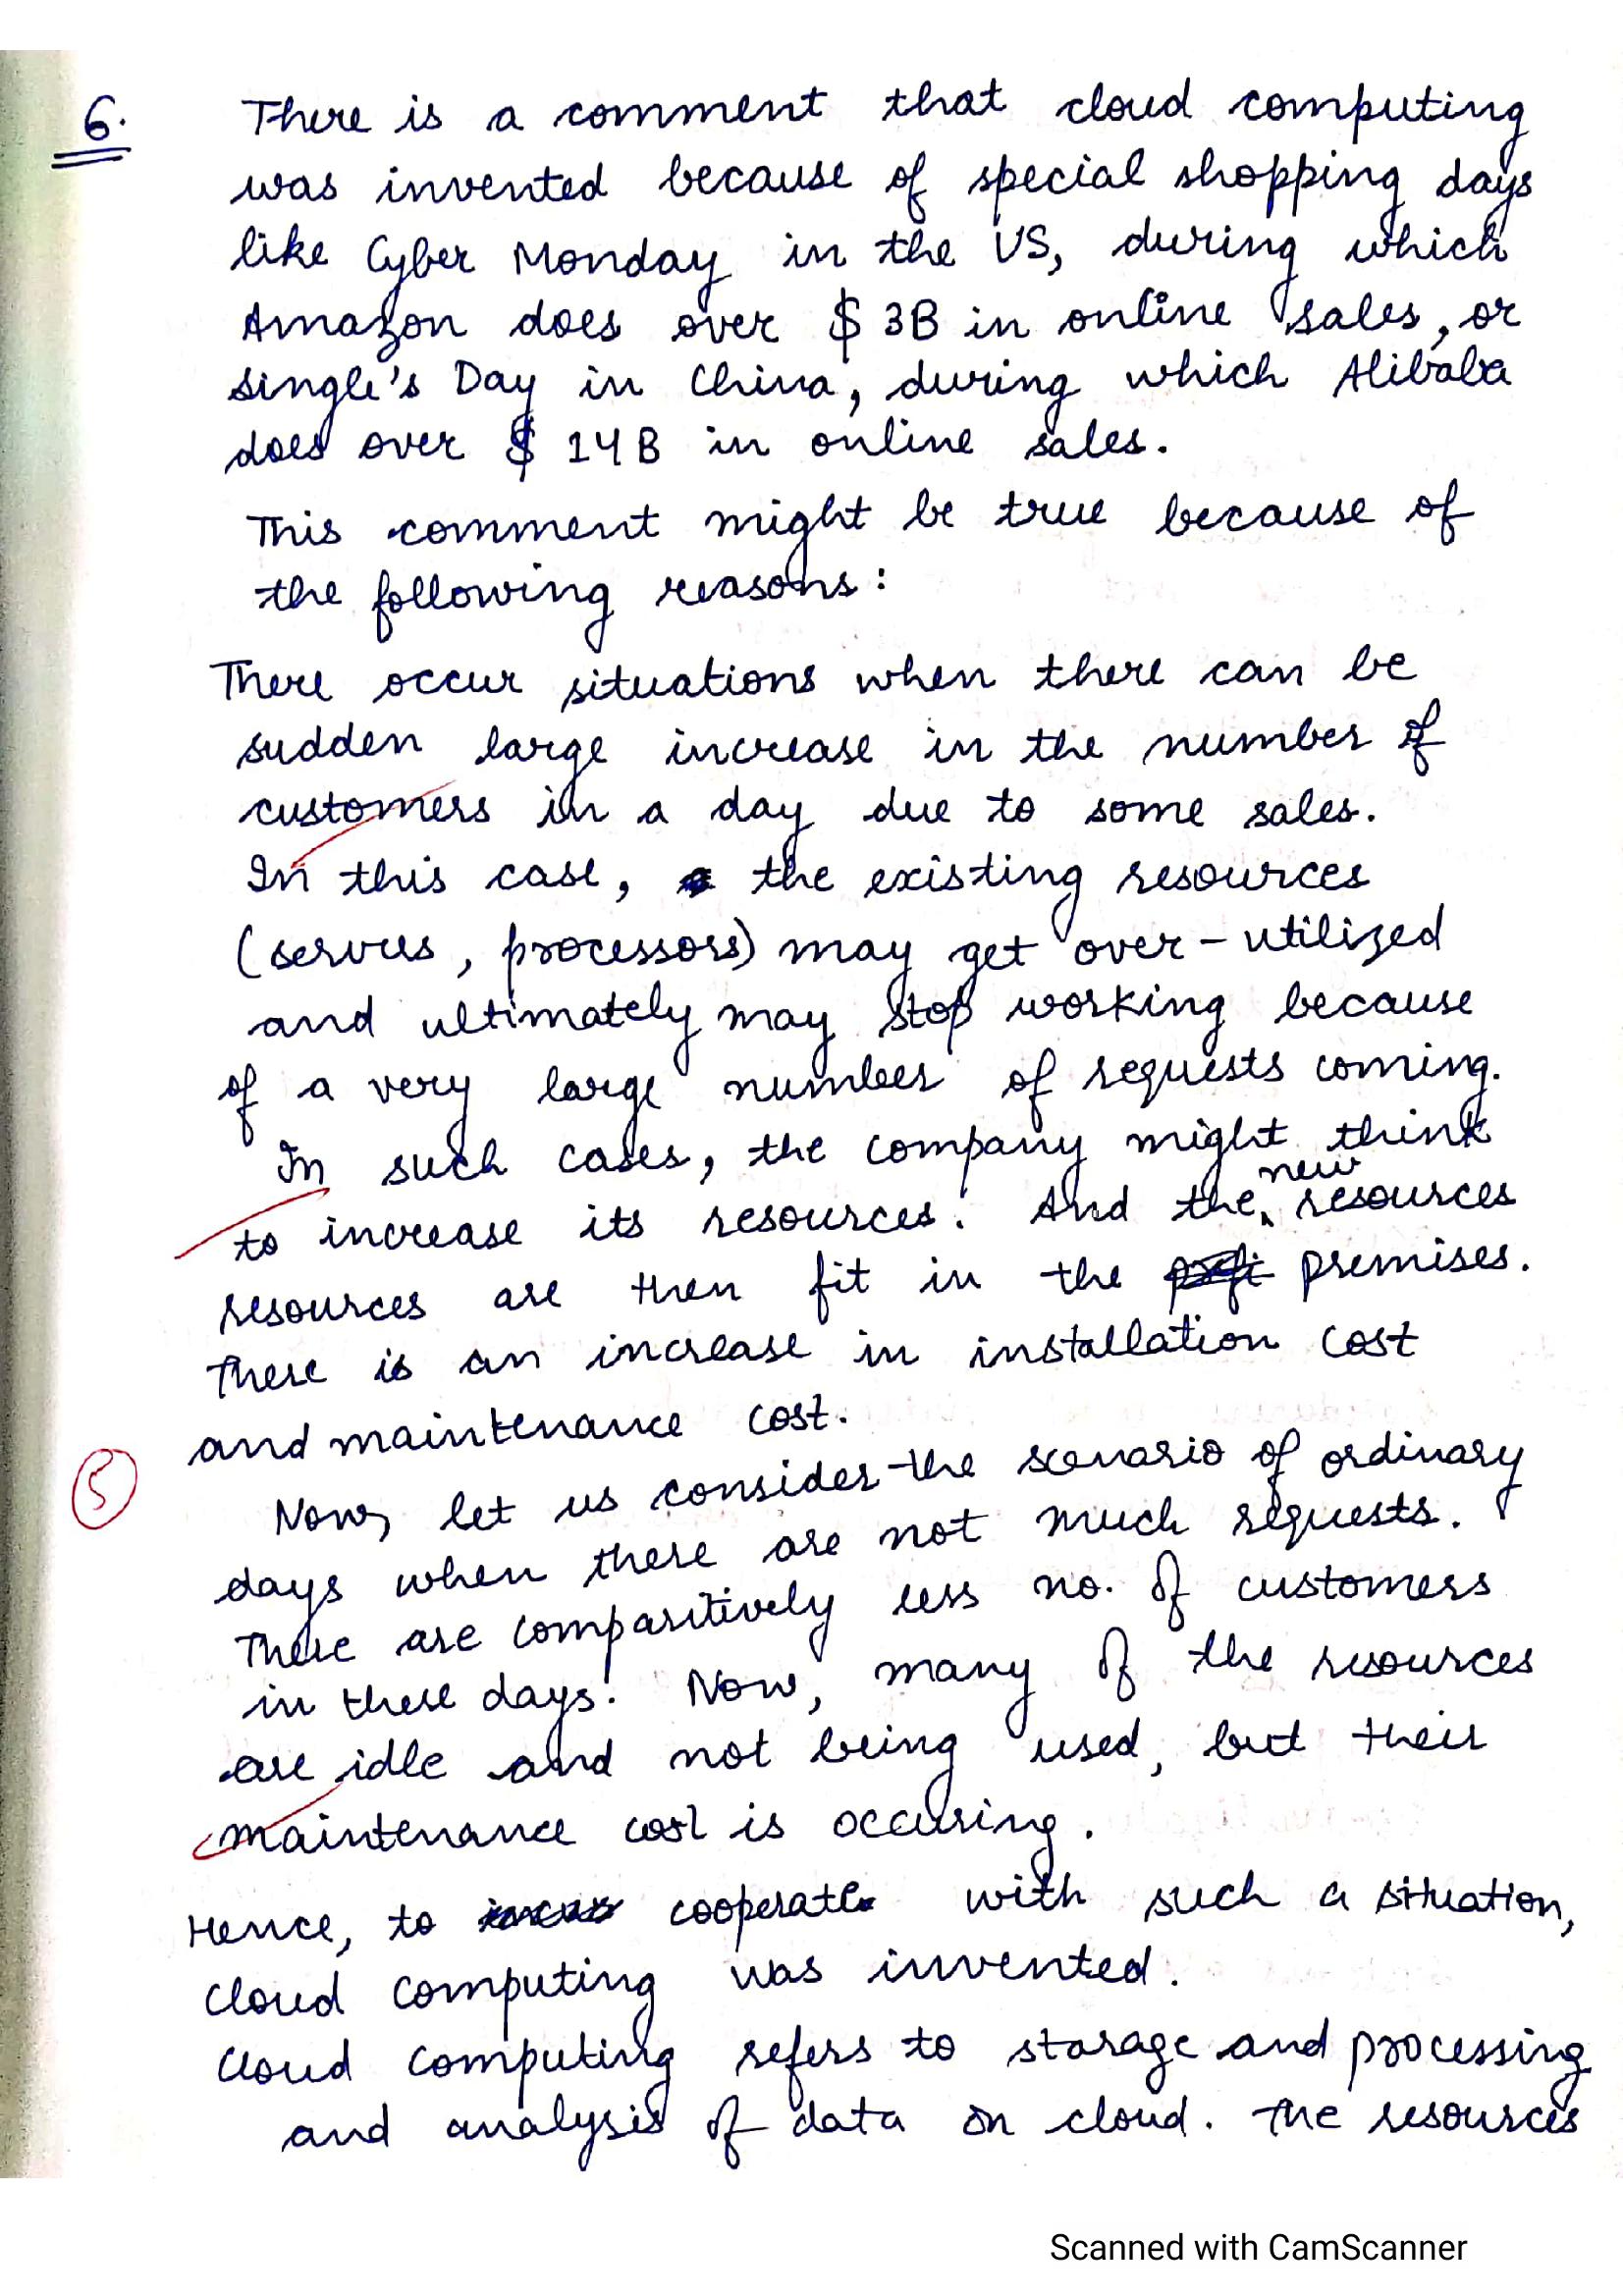 6. There is a comment that cloud computing
was invented because of special shopping days
like Cyber Monday in the US, during which
Amazon does over $ 3B in online sales, or
single's Day in China, during which Alibaba
does over $ 14B in online sales.
This comment might be true because of
the following reasons:
There occur situations when there can be
sudden large increase in the number of
customers in a day due to some sales.
In this case, the existing resources
(servers, processors) may get over-utilized
and ultimately may stop working because
of a very large number of requests coming.
In such cases, the company might think
to increase its resources. And the new resources
resources are then fit in the premises.
There is an increase in installation cost
and maintenance cost.
5
Now, let us consider the scenario of ordinary
days when there are not much requests.
There are comparitively less no. of customers
in these days. Now, many of the resources
are idle and not being used, but their
maintenance cost is occuring.
Hence, to cooperate with such a situation,
cloud computing was invented.
Cloud computing refers to storage and processing
and analysis of data on cloud. The resources
Scanned with CamScanner